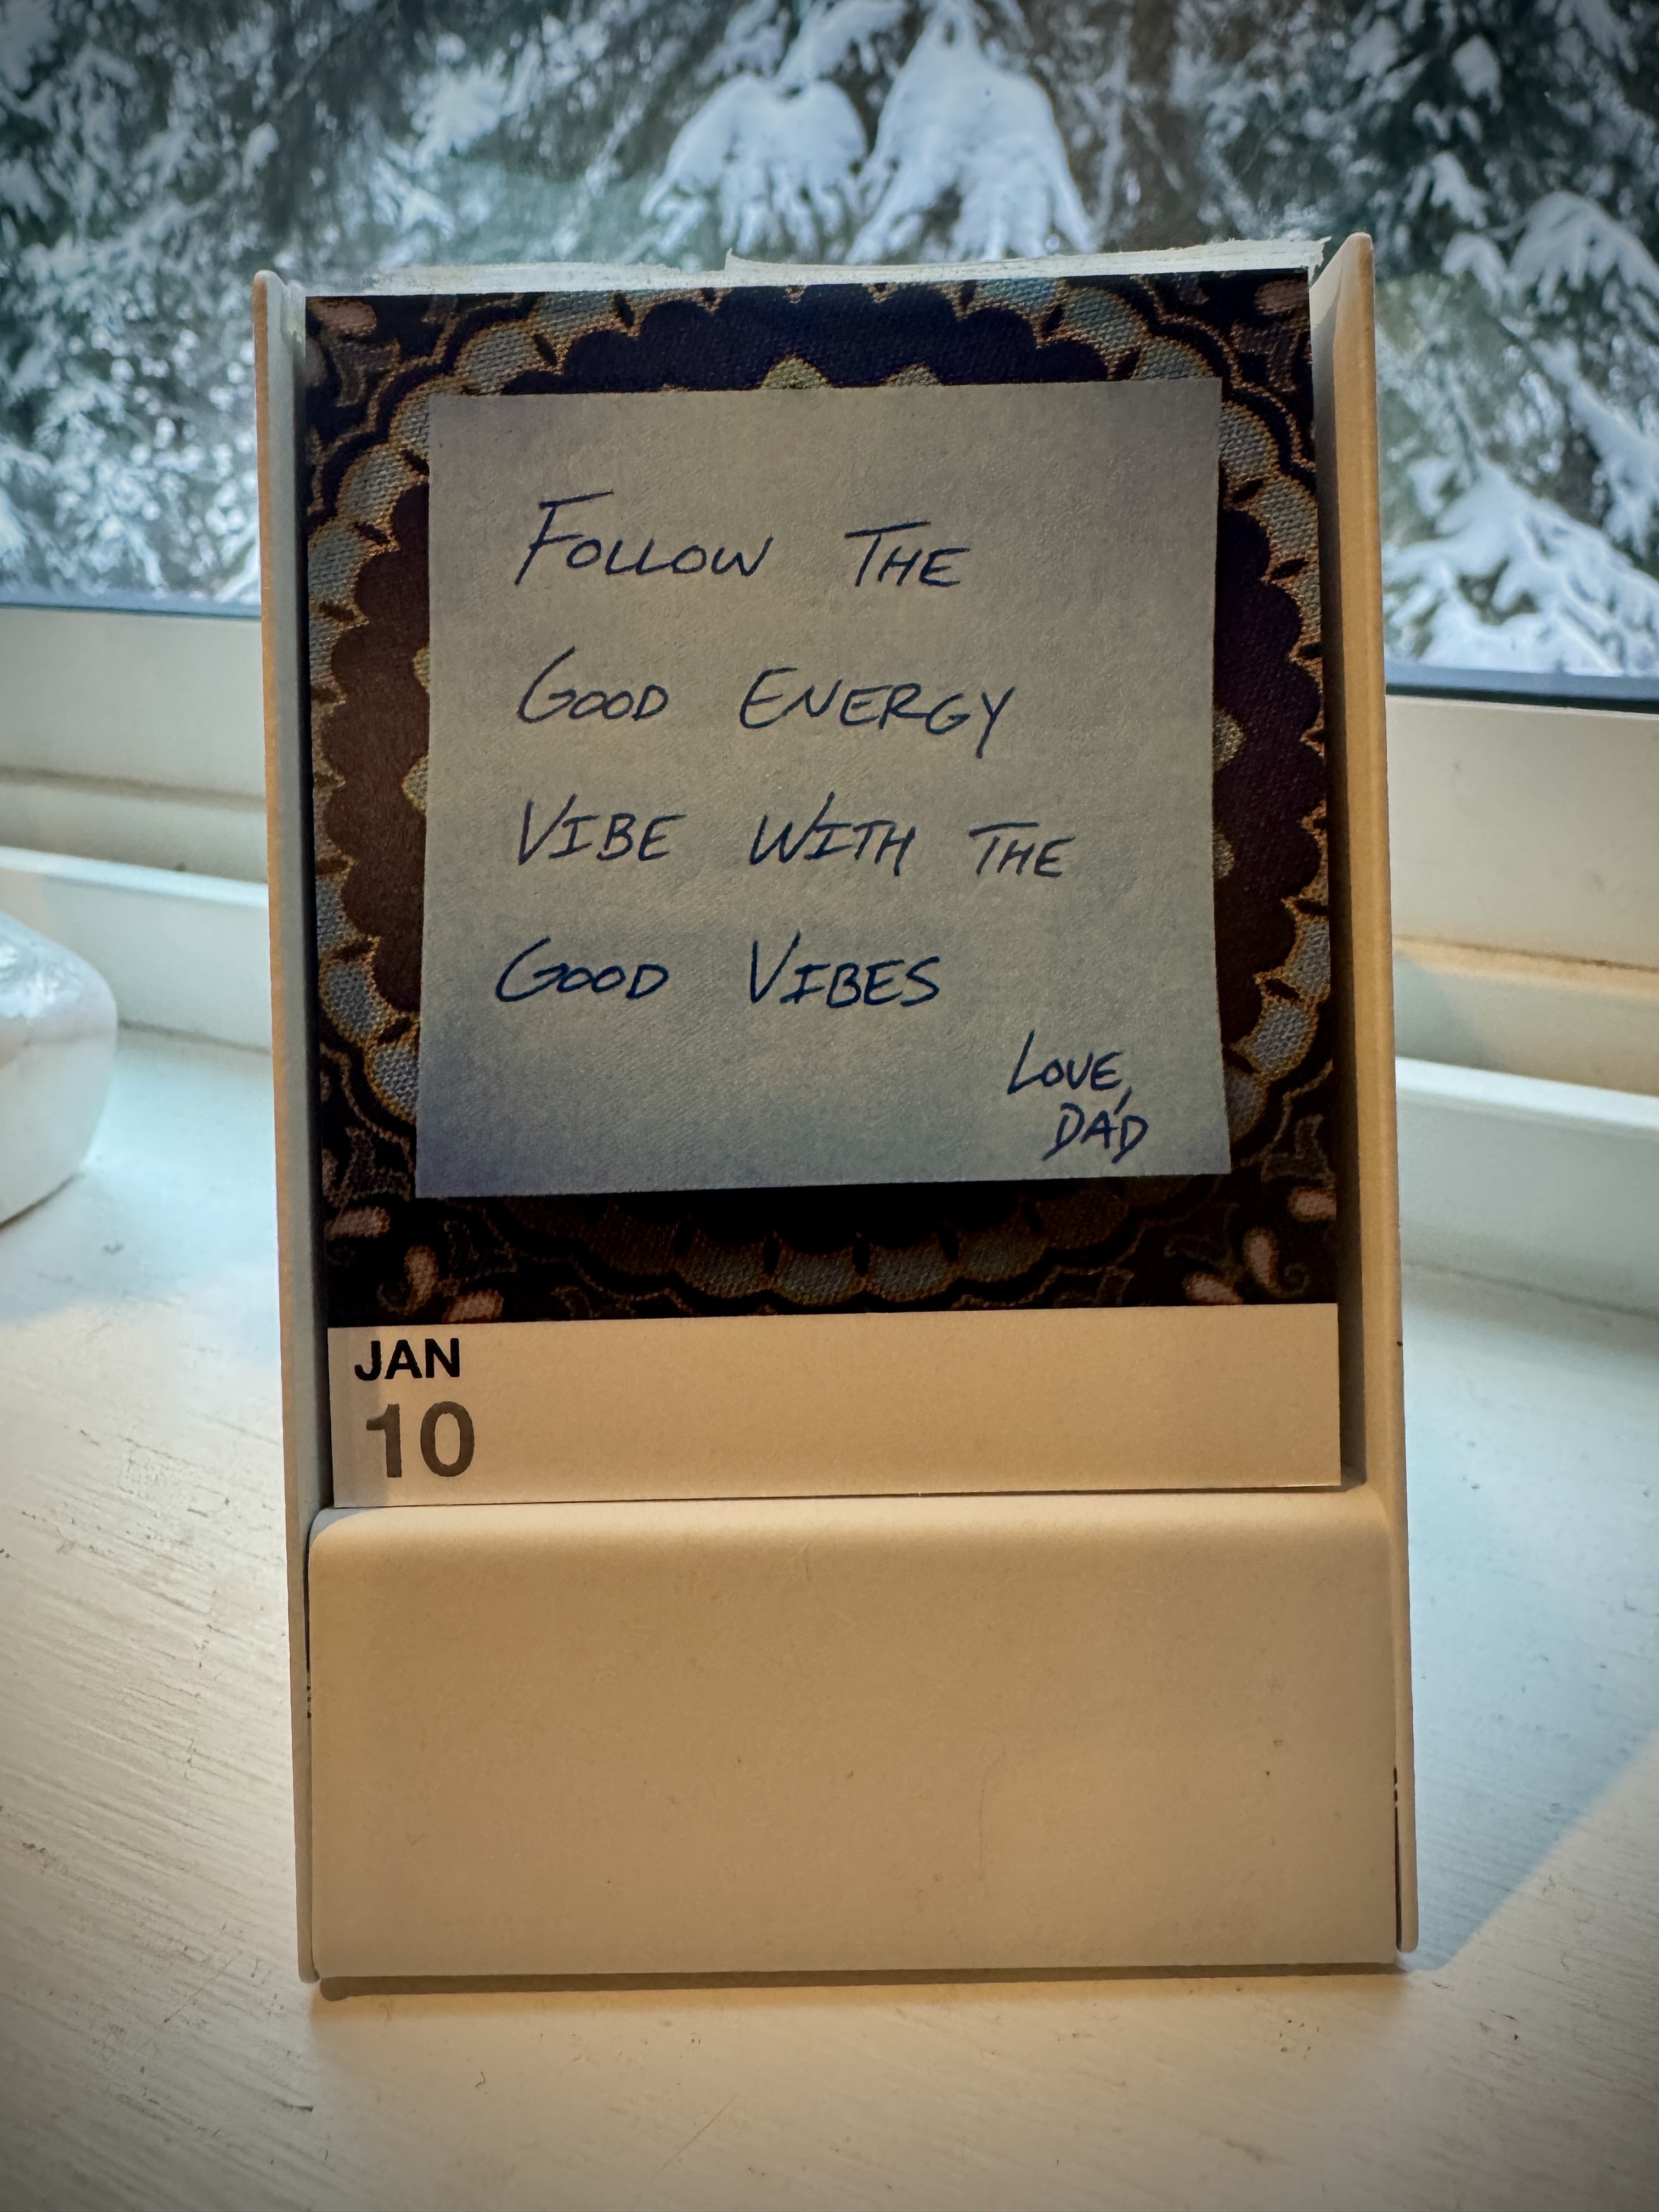 FOLLOW THE
GOOD ENERGY
VIBE WITH THE
GOOD VIBES
LOVE,
DAD
JAN
10